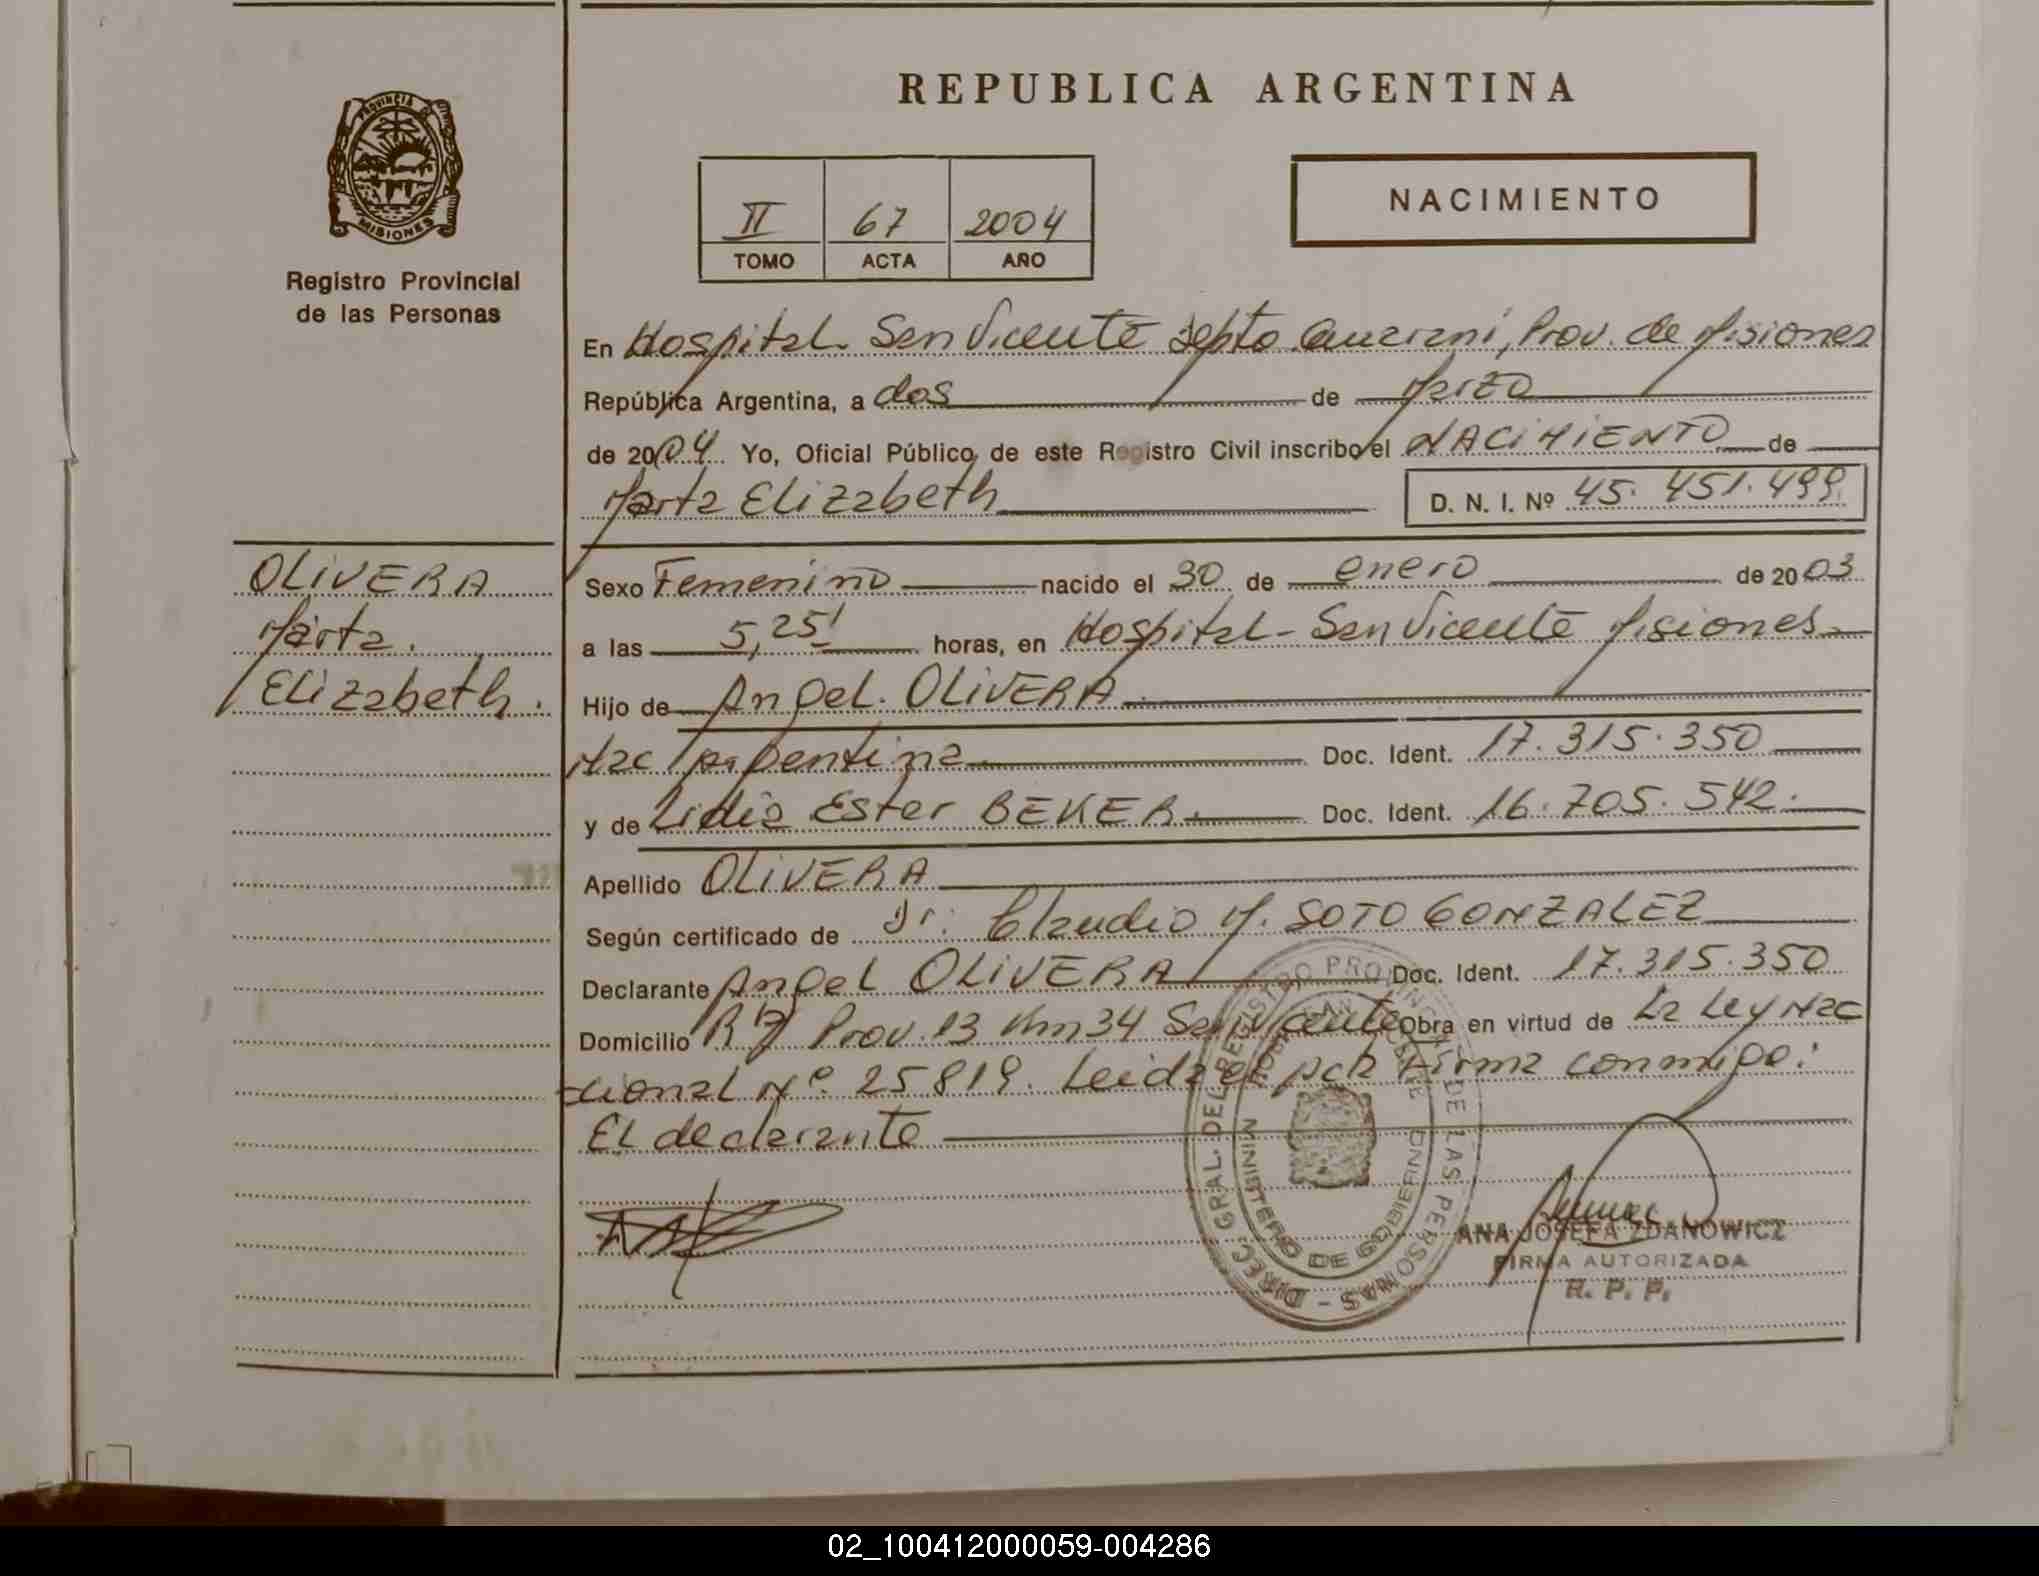 REPUBLICA ARGENTINA
PROVINCIA DE MISIONES
Registro Provincial
de las Personas
II 67 2004
TOMO ACTA AÑO
NACIMIENTO
En Hospital San Vicente Depto Guarani, Prov. de Misiones
República Argentina, a dos de Marzo
de 2004 Yo, Oficial Público de este Registro Civil inscribo el NACIMIENTO de
Marta Elizabeth D. N. I. Nº 45.451.499
OLIVERA
Marta
Elizabeth.
Sexo Femenino nacido el 30 de enero de 2003
a las 5,25' horas, en Hospital - San Vicente Misiones
Hijo de Angel OLIVERA
Nac Argentina Doc. Ident. 17.315.350
y de Lidia Ester BEKER. Doc. Ident. 16.705.542.
Apellido OLIVERA
Según certificado de Dr. Claudio M. SOTO GONZALEZ
Declarante Angel OLIVERA Doc. Ident. 17.315.350
Domicilio Prov. 13 Km 34 San Vicente Obra en virtud de La Ley Nac
cional Nº 25819. Leida el acta Firma conmigo:
El declarante
DIREC. GRAL. DEL REGISTRO PROVINCIAL DE LAS PERSONAS
MINISTERIO DE GOBIERNO
ANA JOSEFA ZDANOWICZ
FIRMA AUTORIZADA
R. P. P.
02_100412000059-004286